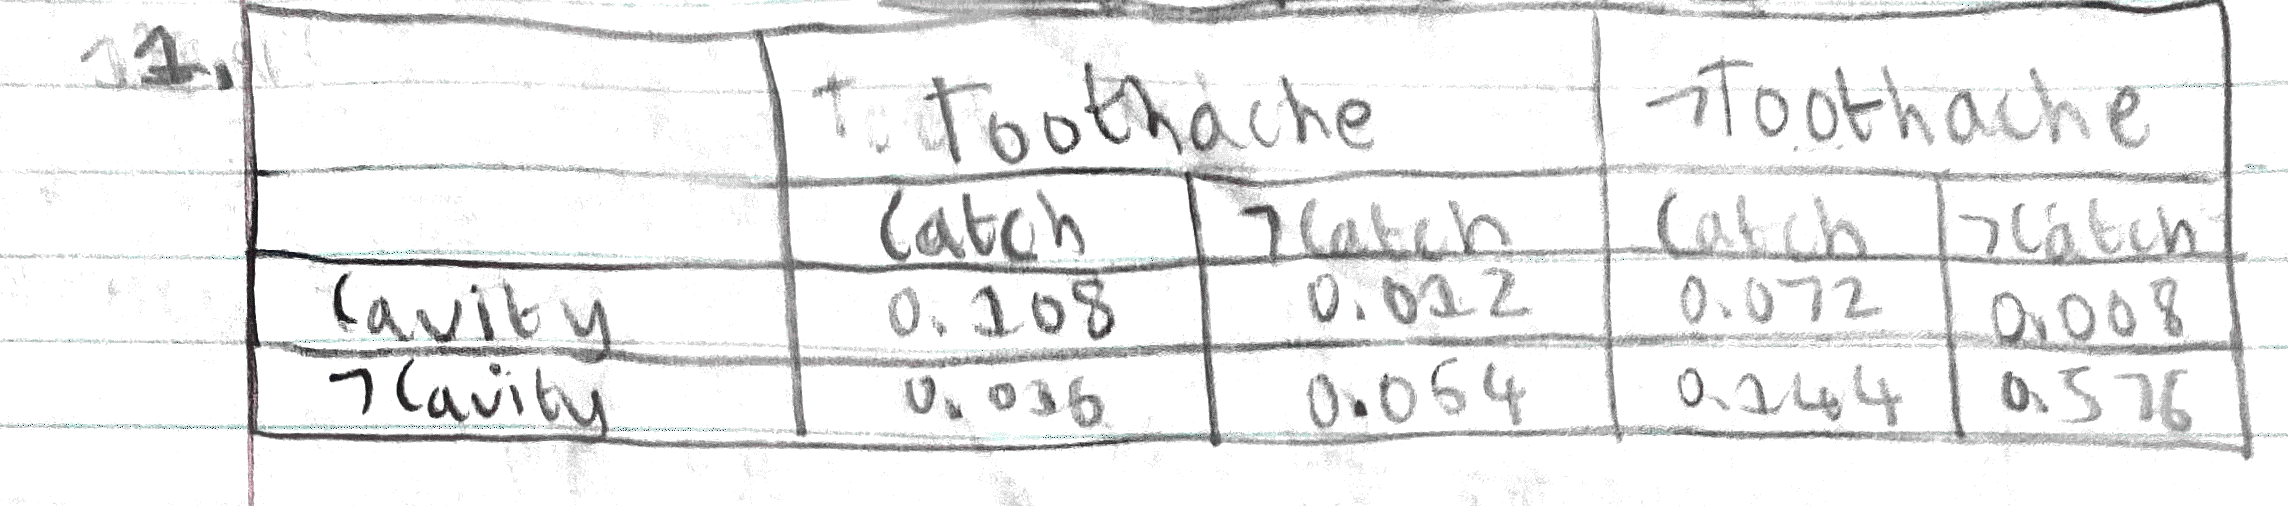 1.
Toothache ¬Toothache
Catch ¬Catch Catch ¬Catch
Cavity 0.108 0.012 0.072 0.008
¬Cavity 0.016 0.064 0.144 0.576